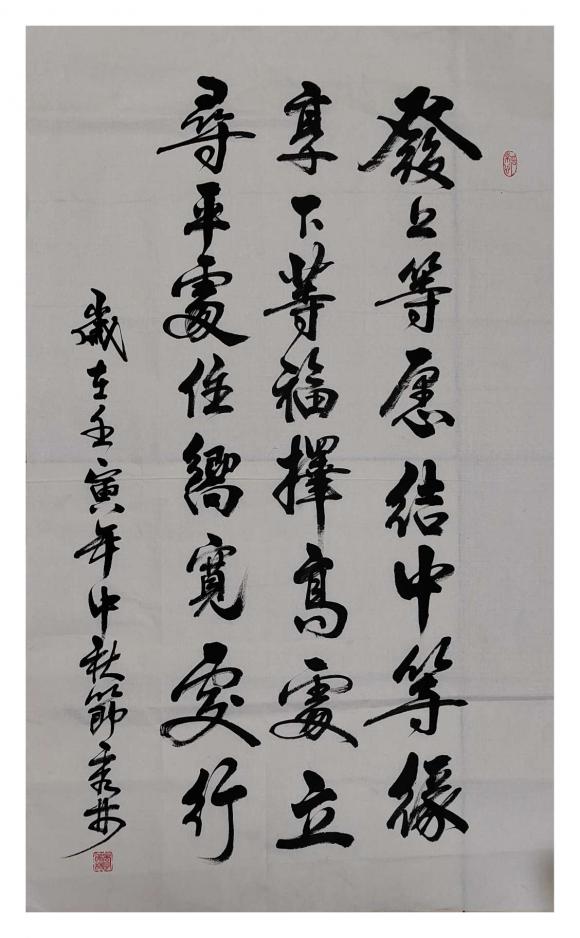 發上等愿結中等緣
享下等福擇高處立
尋平處住嚮寬處行
歲在壬寅年中秋節秀林